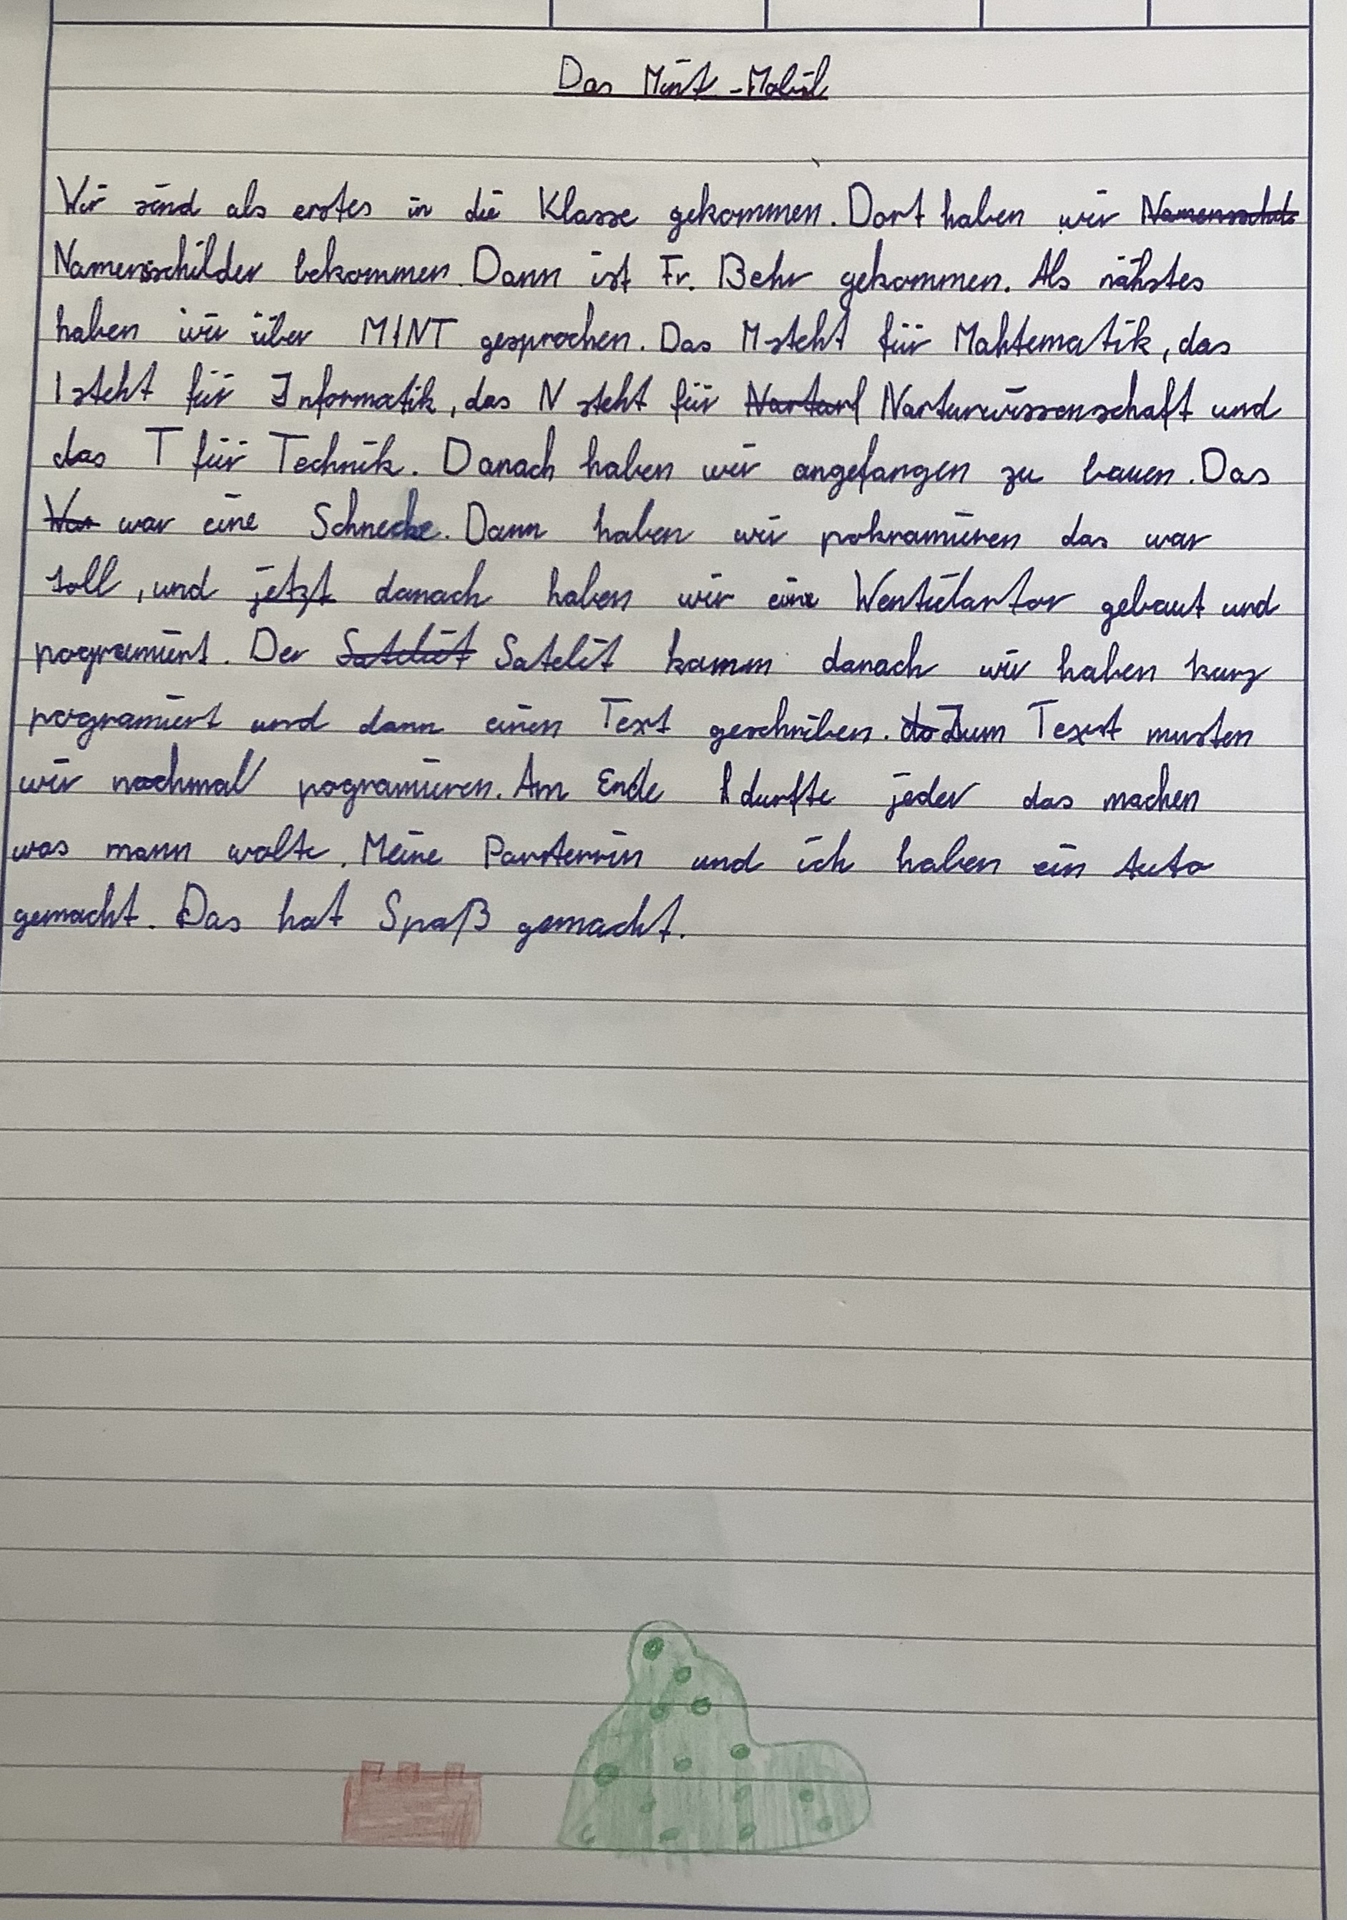 Das Mint-Mobil
Wir sind als erstes in die Klasse gekommen. Dort haben wir
Namensschilder bekommen. Dann ist Fr. Behr gekommen. Als nähstes
haben wir über MINT gesprochen. Das M steht für Mahtematik, das
I steht für Informatik, das N steht für Narturwissenschaft und
das T für Technik. Danach haben wir angefangen zu bauen. Das
war eine Schnecke. Dann haben wir pokramieren das war
toll, und jetzt danach haben wir eine Wentielartor gebaut und
pogramiert. Der Satelit kamm danach wir haben kurz
programiert und dann einen Text geschriben. Zum Text musten
wir nochmal pogramieren. Am Ende durfte jeder das machen
was mann wolte. Meine Parsterrin und ich haben ein Auto
gemacht. Das hat Spaß gemacht.